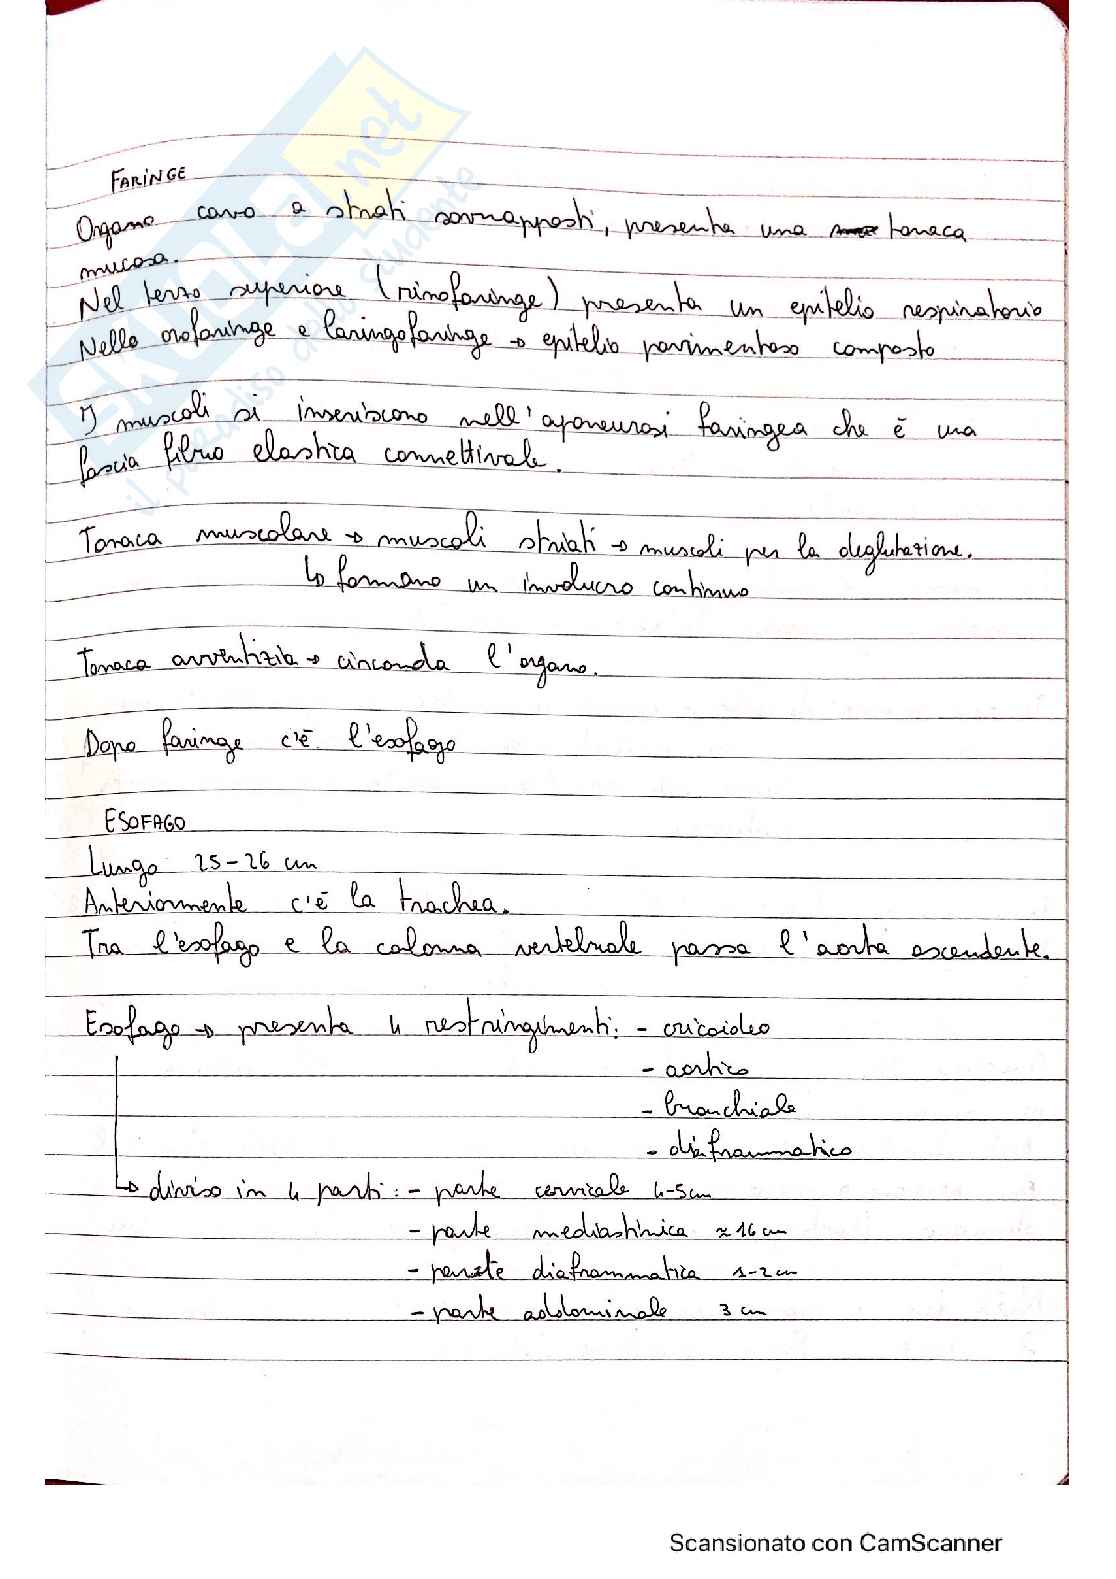 FARINGE
Organo cavo a strati sovrapposti, presenta una tonaca
mucosa.
Nel terzo superiore (rinofaringe) presenta un epitelio respiratorio
Nella orofaringe e laringofaringe → epitelio pavimentoso composto
I muscoli si inseriscono nell'aponeurosi faringea che è una
fascia fibro elastica connettivale.
Tonaca muscolare → muscoli striati → muscoli per la deglutazione.
↳ formano un involucro continuo
Tonaca avventizia → circonda l'organo.
Dopo faringe c'è l'esofago
ESOFAGO
Lungo 25-26 cm
Anteriormente c'è la trachea.
Tra l'esofago e la colonna vertebrale passa l'aorta ascendente.
Esofago → presenta 4 restringimenti: - cricoideo
- aortico
- bronchiale
- diaframmatico
↳ diviso in 4 parti: - parte cervicale 4-5cm
- parte mediastinica ≈ 16 cm
- parete diaframmatica 1-2 cm
- parte addominale 3 cm
SKUOLA.net
il paradiso dello studente
Scansionato con CamScanner